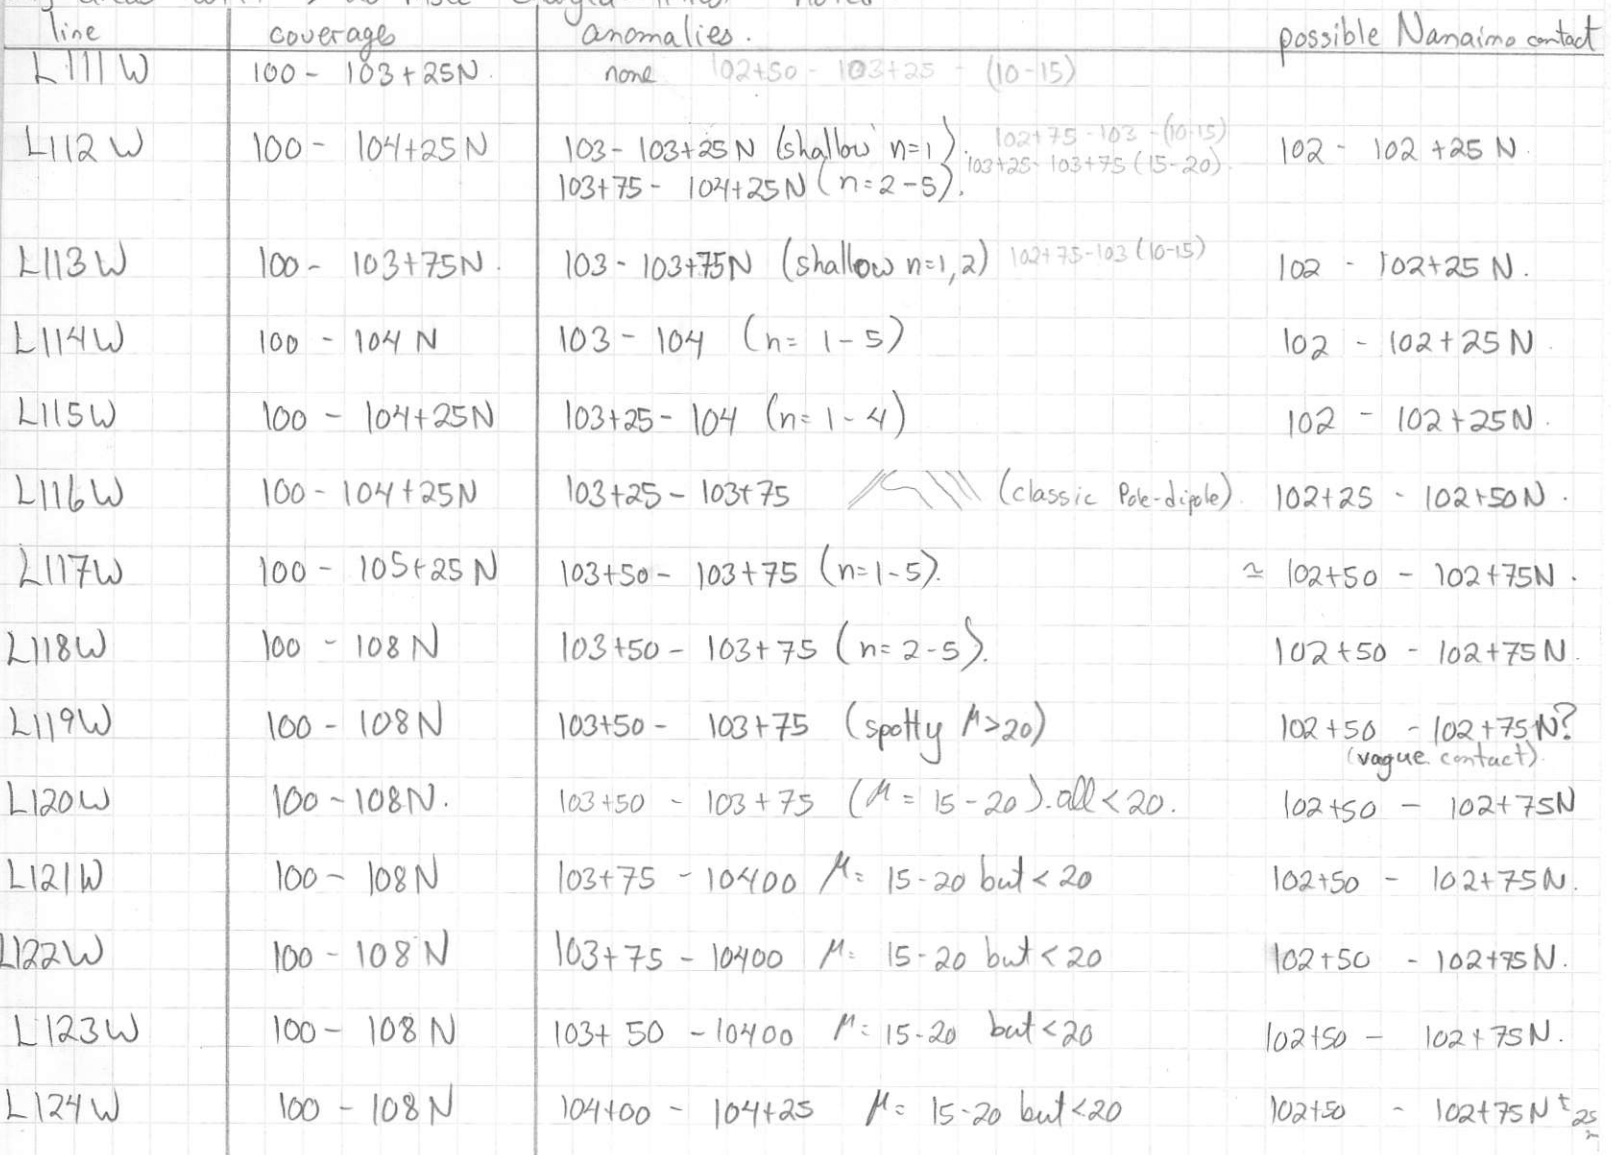 line coverage anomalies. possible Nanaimo contact
L111W 100 - 103+25N. none 102+50 - 103+25 - (10-15)
L112W 100 - 104+25N 103 - 103+25N (shallow n=1). 102+75 - 103 - (10-15) 102 - 102+25 N.
103+25 - 103+75 (15-20).
103+75 - 104+25N (n=2-5).
L113W 100 - 103+75N. 103 - 103+75N (shallow n=1,2) 102+75-103 (10-15) 102 - 102+25 N.
L114W 100 - 104 N 103 - 104 (n= 1-5) 102 - 102+25N.
L115W 100 - 104+25N 103+25 - 104 (n= 1-4) 102 - 102+25N.
L116W 100 - 104+25N 103+25 - 103+75 (classic Pole-dipole). 102+25 - 102+50N.
L117W 100 - 105+25 N 103+50 - 103+75 (n=1-5). ≃ 102+50 - 102+75N.
L118W 100 - 108 N 103+50 - 103+75 (n= 2-5). 102+50 - 102+75N.
L119W 100 - 108N 103+50 - 103+75 (spotty M>20) 102+50 - 102+75N?
(vague contact).
L120W 100 - 108N. 103+50 - 103+75 (M = 15-20). all < 20. 102+50 - 102+75N
L121W 100 - 108N 103+75 - 10400 M= 15-20 but < 20 102+50 - 102+75N.
L122W 100 - 108 N 103+75 - 10400 M= 15-20 but < 20 102+50 - 102+75N.
L123W 100 - 108 N 103+50 - 10400 M= 15-20 but <20 102+50 - 102+75N.
L124W 100 - 108 N 104+00 - 104+25 M= 15-20 but <20 102+50 - 102+75N ± 25